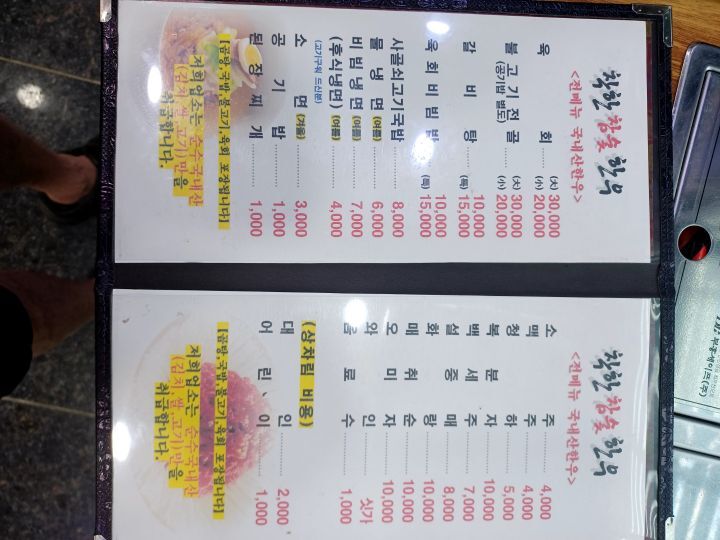 착한 참숯 한우
<전메뉴 국내산한우>
육 회 ..... (大) 30,000
(小) 20,000
불고기전골 ..... (大) 30,000
(공기밥 별도) (小) 20,000
갈 비 탕 ..... 10,000
(특) 15,000
육 회 비 빔 밥 ..... 10,000
(특) 15,000
사골쇠고기국밥 ..... 8,000
물 냉 면 (여름) ..... 6,000
비 빔 냉 면 (여름) ..... 7,000
(후식냉면) (여름) ..... 4,000
(고기구워 드신분)
소 면 (겨울) ..... 3,000
공 기 밥 ..... 1,000
된 장 찌 개 ..... 1,000
[곰탕,국밥,불고기,육회 포장됩니다]
저희업소는 순수국내산
(김치,쌀,고기)만 을
취급합니다.
착한 참숯 한우
<전메뉴 국내산한우>
소 주 ..... 4,000
맥 주 ..... 4,000
청 하 ..... 5,000
복 분 자 ..... 10,000
백 세 주 ..... 7,000
설 중 매 ..... 8,000
화 랑 ..... 10,000
매 취 순 ..... 10,000
오 미 자 ..... 10,000
와 인 ..... 싯가
음 료 수 ..... 1,000
(상차림 비용)
대 인 ..... 2,000
어 린 이 ..... 1,000
[곰탕,국밥,불고기,육회 포장됩니다]
저희업소는 순수국내산
(김치,쌀,고기)만 을
취급합니다.